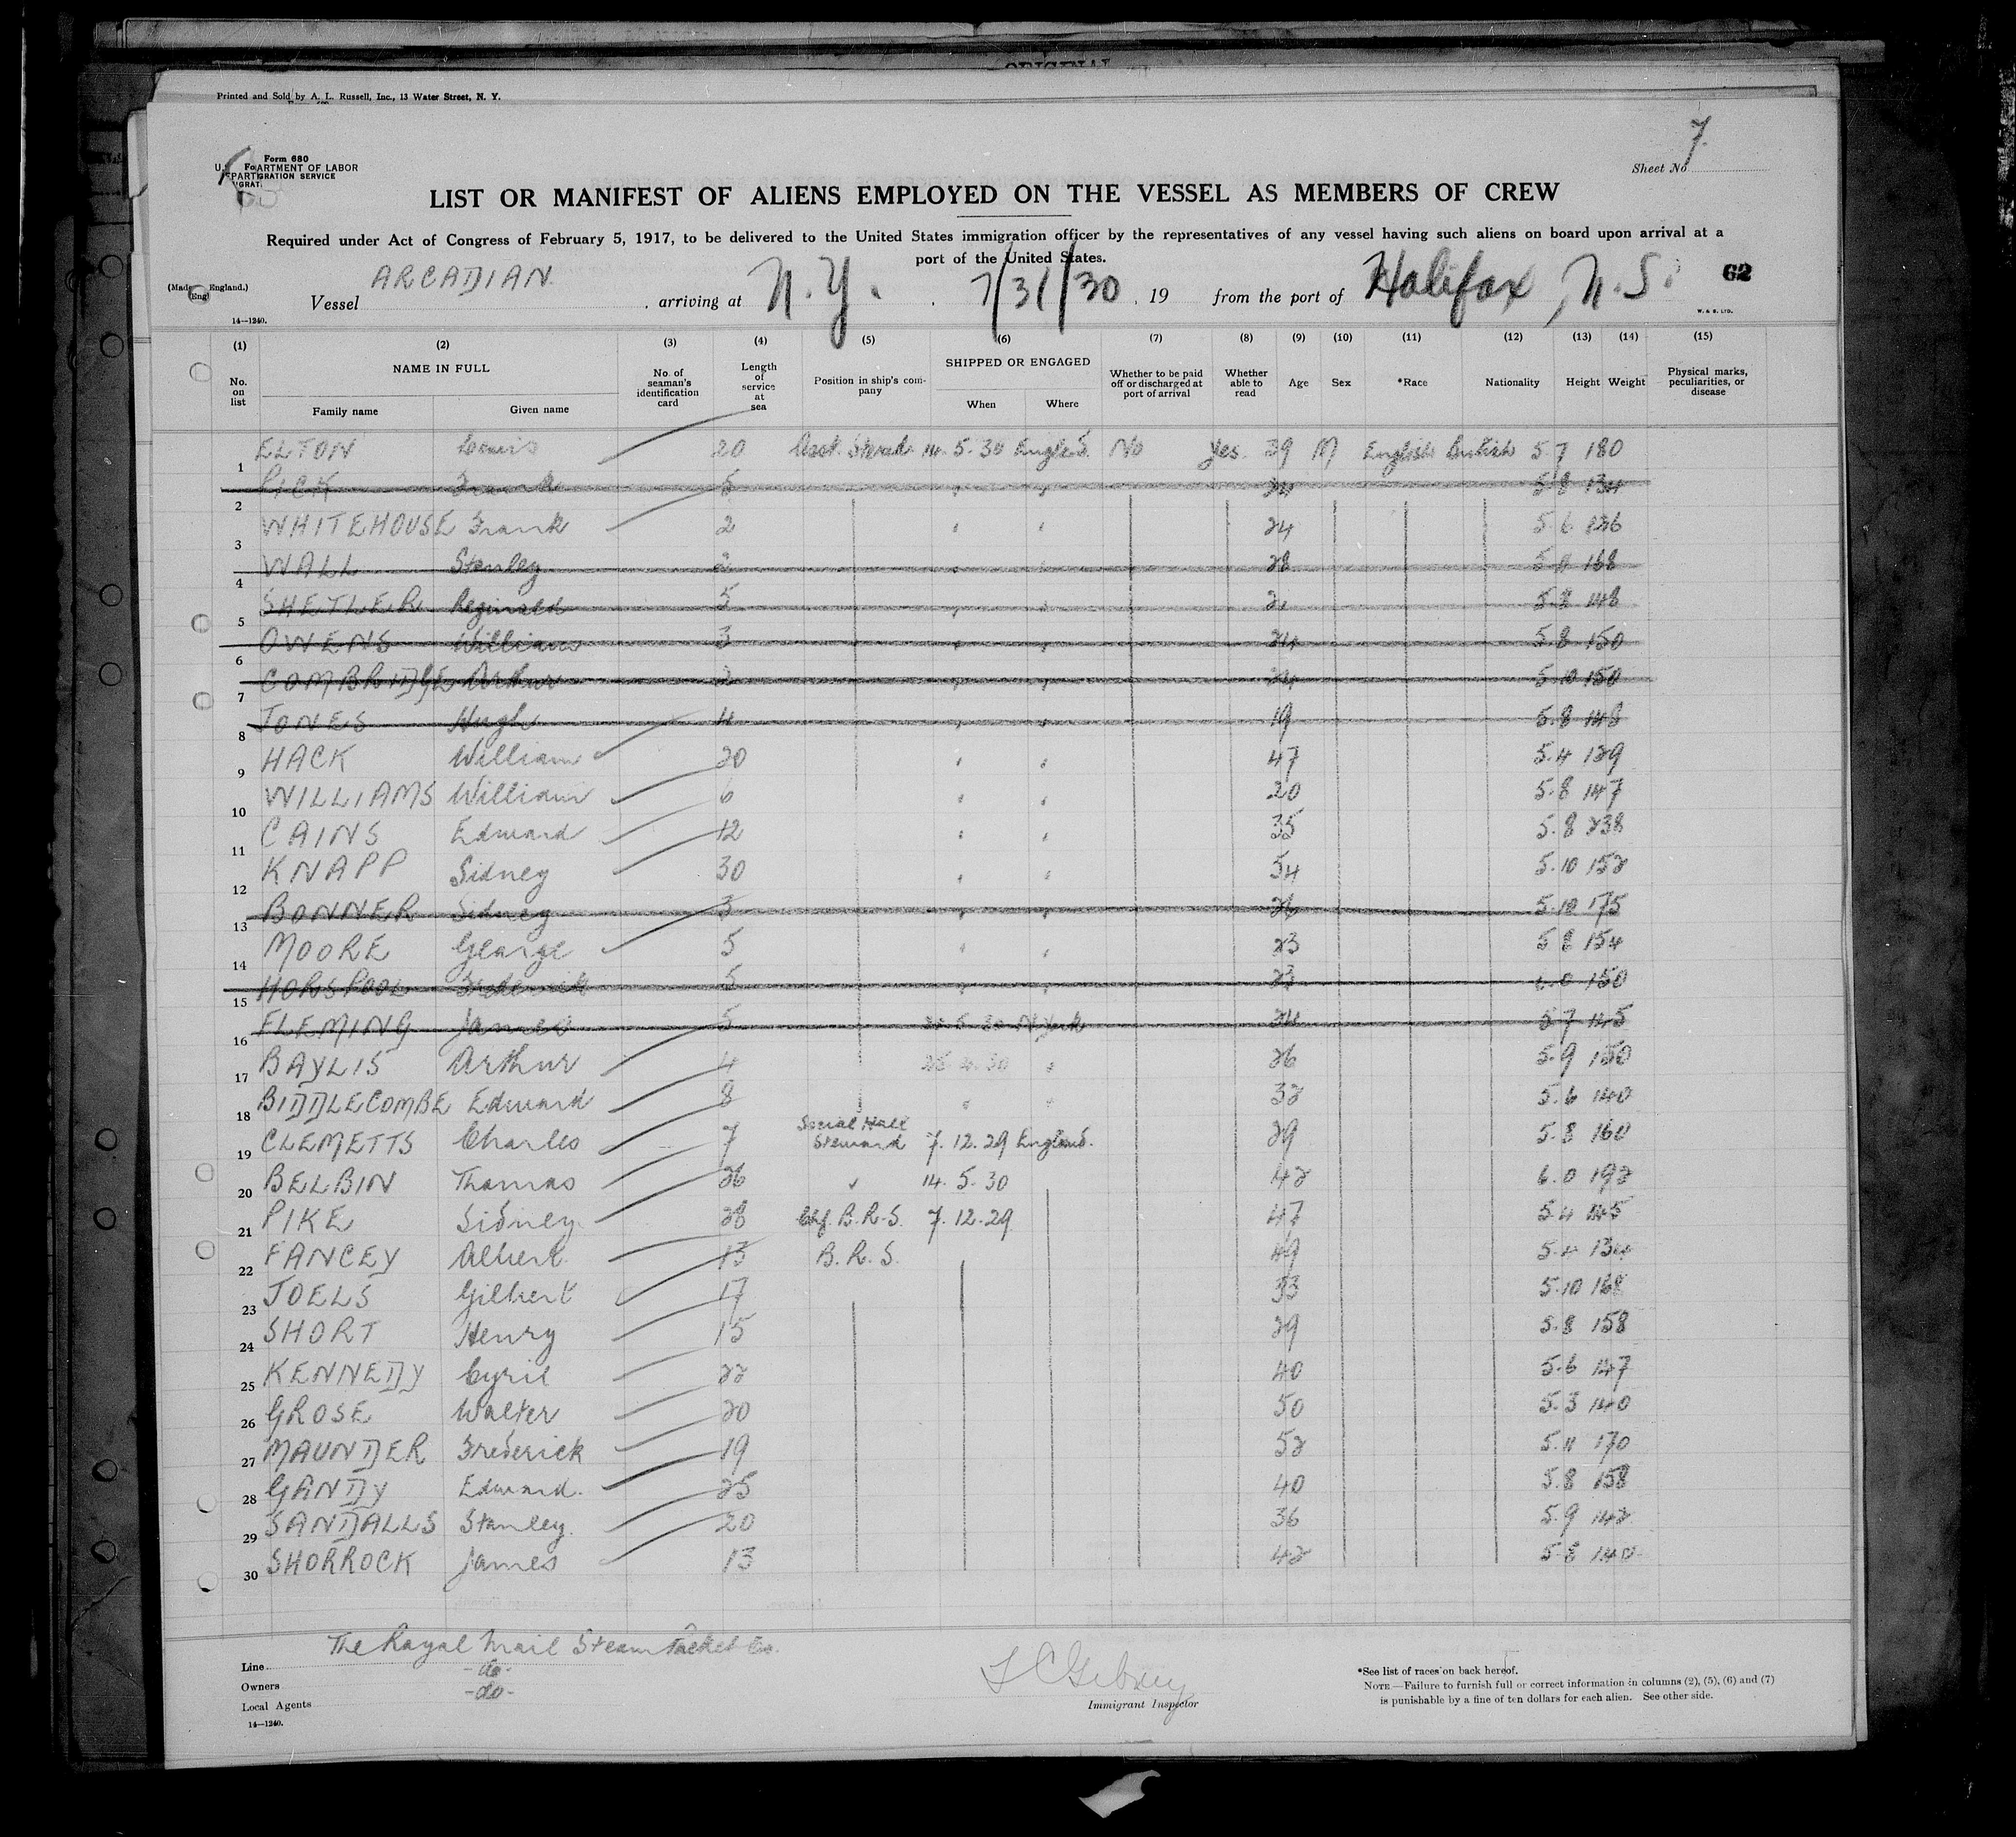 ORIGINAL
Printed and Sold by A. L. Russell, Inc., 13 Water Street, N. Y.
Form 680
7
Sheet No
LIST OR MANIFEST OF ALIENS EMPLOYED ON THE VESSEL AS MEMBERS OF CREW
Required under Act of Congress of February 5, 1917, to be delivered to the United States immigration officer by the representatives of any vessel having such aliens on board upon arrival at a
port of the United States.
62
Vessel ARCADIAN arriving at N. Y. 7/31/30, 19 from the port of Halifax, N. S.
14—1240.
W. & S. LTD.
(1) (2) (3) (4) (5) (6) (7) (8) (9) (10) (11) (12) (13) (14) (15)
No. on list NAME IN FULL Family name Given name No. of seaman's identification card Length of service at sea Position in ship's company SHIPPED OR ENGAGED When Where Whether to be paid off or discharged at port of arrival Whether able to read Age Sex *Race Nationality Height Weight Physical marks, peculiarities, or disease
1 ELTON Louis 20 Asst. Steward 14.5.30 England No Yes 39 M English British 5.7 180
2 PICK Frank 5 " " 24 5.8 134
3 WHITEHOUSE Frank 2 " " 24 5.6 136
4 WALL Stanley 2 " " 28 168
5 SHETLER Reginald 5 " " 5.8 148
6 OWENS William 3 " " 24 5.8 150
7 COMBRIDGE Arthur 2 " " 24 5.10 150
8 JONES Hugh 4 " " 19 5.8 148
9 HACK William 20 " " 47 5.4 129
10 WILLIAMS William 6 " " 20 5.8 147
11 CAINS Edward 12 " " 35 5.8 238
12 KNAPP Sidney 30 " " 54 5.10 152
13 BONNER Sidney 3 " " 26 5.10 175
14 MOORE George 5 " " 23 5.8 154
15 HORSPOOL Frederick 5 " " 23 6.0 150
16 FLEMING James 5 5.30 N. York 24 5.7 145
17 BAYLIS Arthur 4 30 " 26 5.9 150
18 BIDDLECOMBE Edward 8 " " 32 5.6 140
19 CLEMETTS Charles 7 Social Hall Steward 7.12.29 England. 29 5.8 160
20 BELBIN Thomas 26 " 14.5.30 42 6.0 192
21 PIKE Sidney 28 Chf. B.R.S. 7.12.29 47 5.4 145
22 FANCEY Albert 13 B.R.S. 49 5.4 134
23 JOELS Gilbert 17 33 5.10 168
24 SHORT Henry 15 29 5.8 158
25 KENNEDY Cyril 22 40 5.6 147
26 GROSE Walter 20 50 5.3 140
27 MAUNDER Frederick 19 52 5.11 170
28 GANDY Edward. 25 40 5.8 158
29 SANDALLS Stanley. 20 36 5.9 142
30 SHORROCK James 13 42 5.8 140
Line The Royal Mail Steam Packet Co.
Owners -do-
Local Agents -do-
14—1240.
Immigrant Inspector
*See list of races on back hereof.
NOTE—Failure to furnish full or correct information in columns (2), (5), (6) and (7)
is punishable by a fine of ten dollars for each alien. See other side.